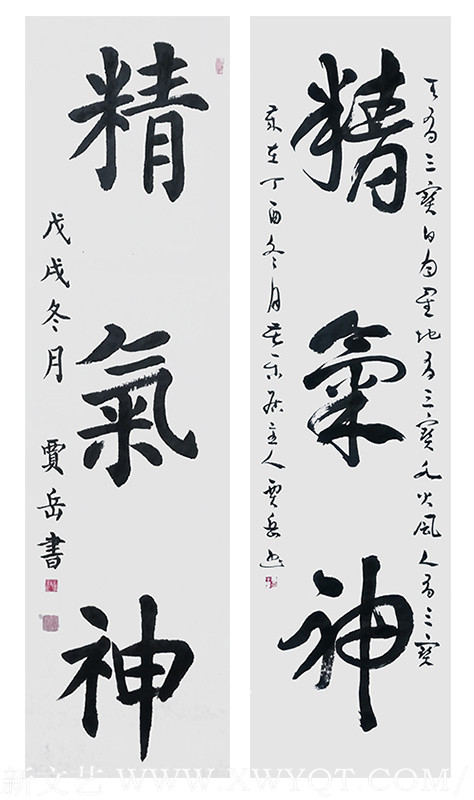 天有三寳日月星地有三寳水火風人有三寳
精氣神
歲在丁酉冬月 居主人賈岳書
精氣神
戊戌冬月 賈岳書
新文艺 WWW.XWYQT.COM/